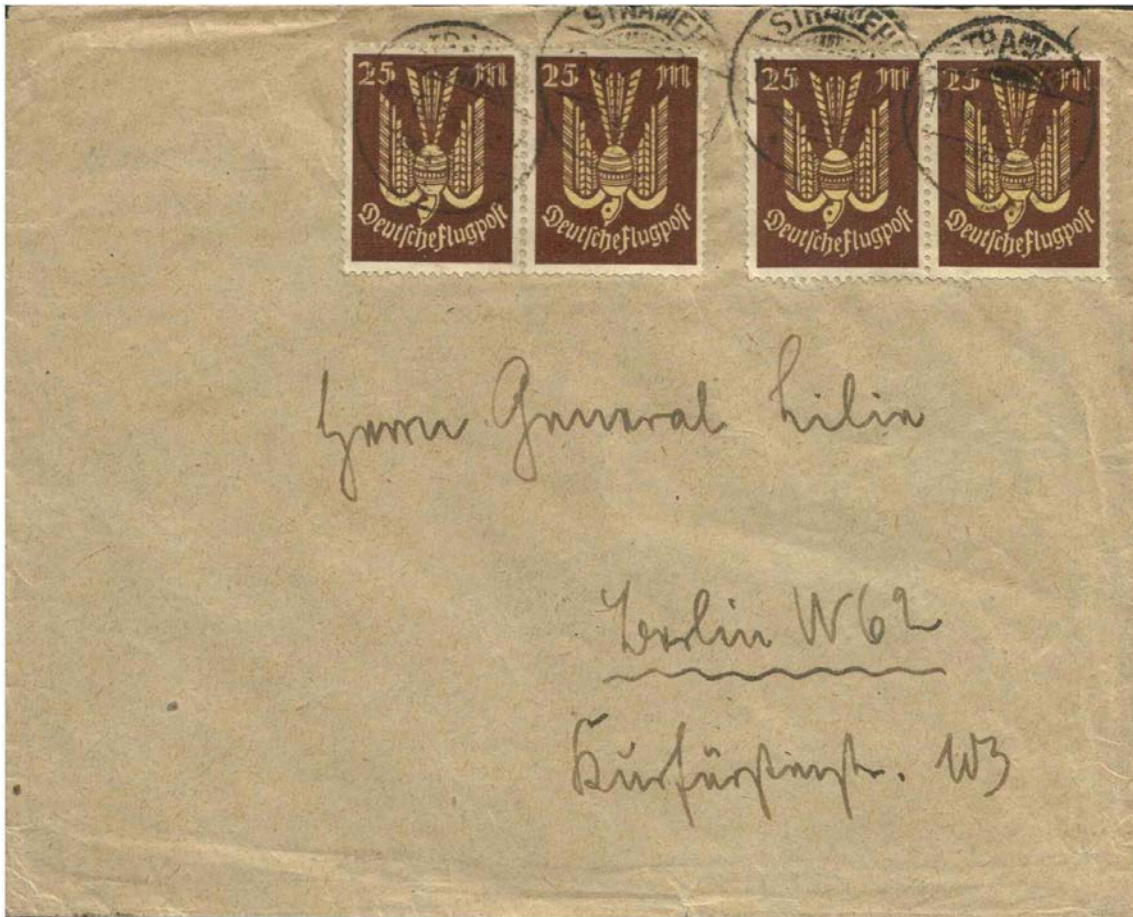 STRAMEHL STRAMEHL
25 M 25 M 25 M 25 M
Deutsche Flugpost Deutsche Flugpost Deutsche Flugpost Deutsche Flugpost
Herrn General Lilie
Berlin W 62
Kurfürstenstr. 103